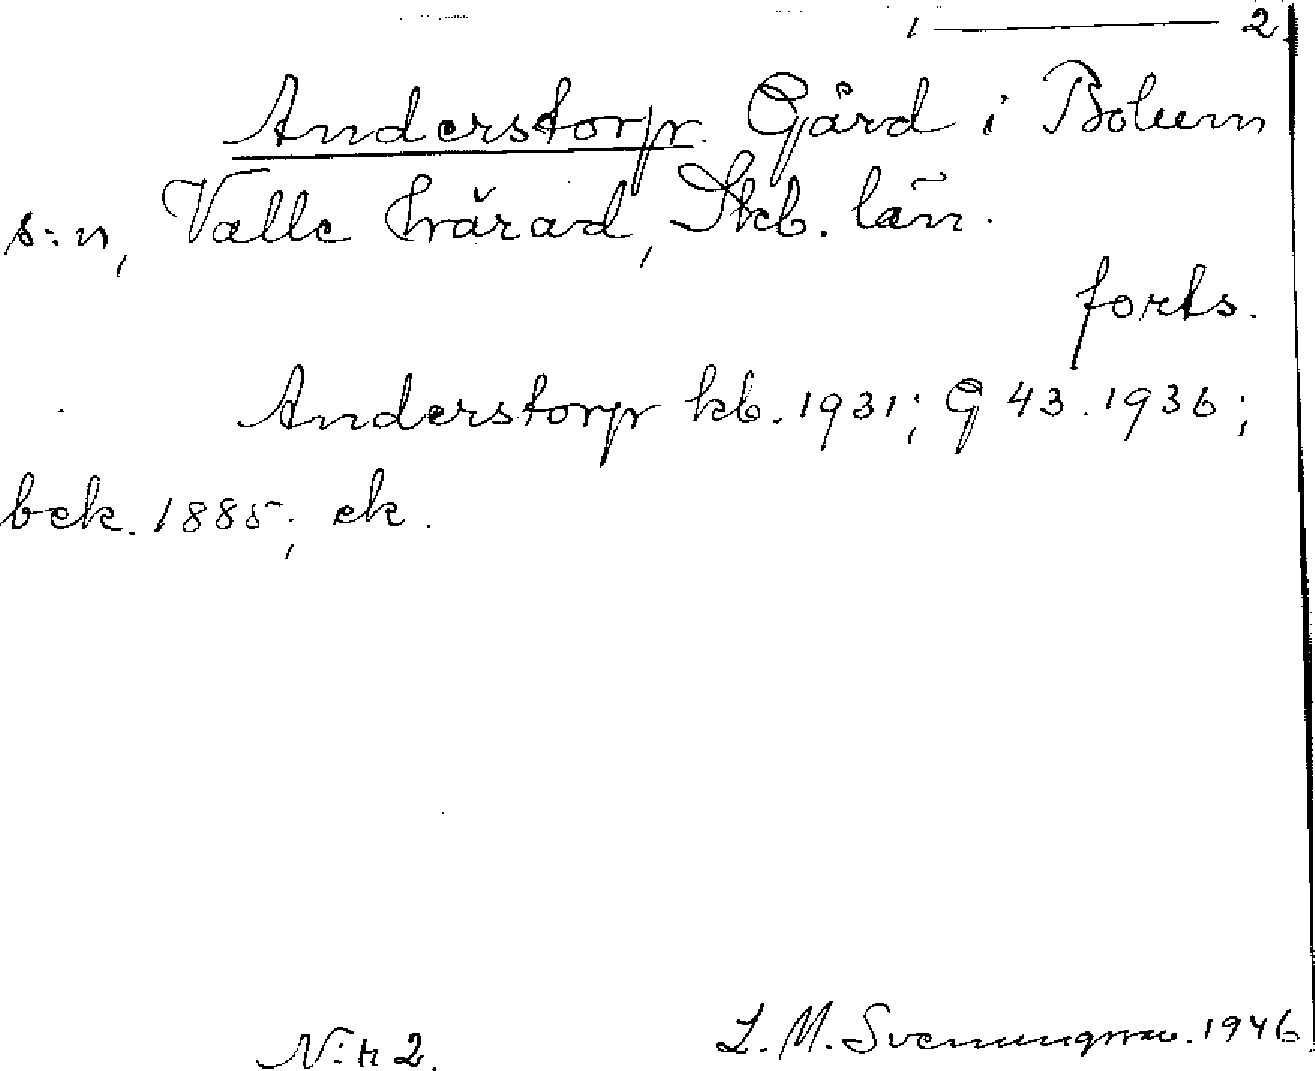 1 ——— 2
Anderstorp. Gård i Bolum
s:n, Valle härad, Skb. län.
forts.
Anderstorp kb. 1931; G 43. 1936;
bek. 1885; ek.
N:r 2.
L. M. Svenungsson. 1946